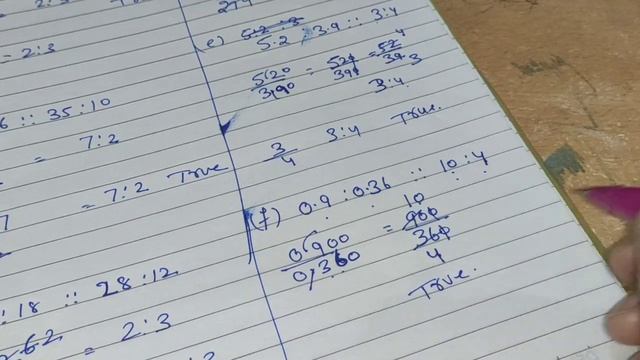 = 2:3
:: 35:10
= 7:2
= 7:2 True
:18 :: 28:12
= 2:3
e) 5.2 : 3.9 :: 3:4
5.20/3.90 = 520/390 = 52/39 4/3
3:4
3/4 3:4 True
(f) 0.9 : 0.36 :: 10:4
0.900/0.360 = 900/360 10/4
True.